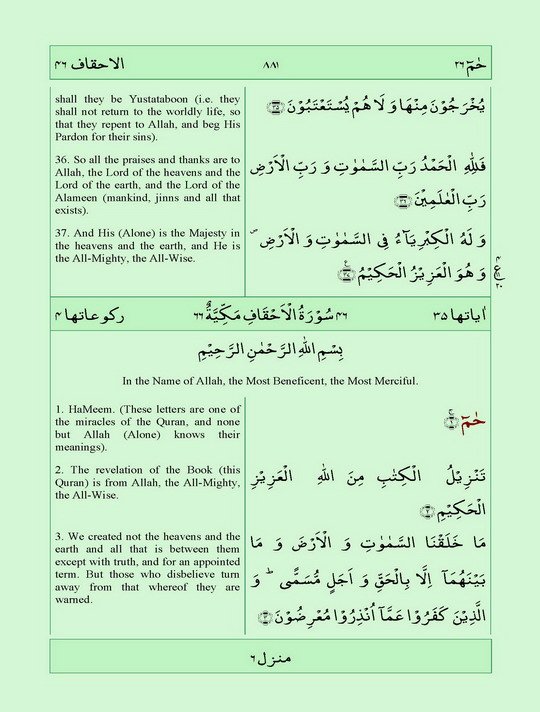 الاحقاف ۴۶ ۸۸۱ حٰمٓ ۲۶
shall they be Yustataboon (i.e. they
shall not return to the worldly life, so
that they repent to Allah, and beg His
Pardon for their sins).
يُخْرَجُوْنَ مِنْهَا وَ لَا هُمْ يُسْتَعْتَبُوْنَ ﴿۳۵﴾
36. So all the praises and thanks are to
Allah, the Lord of the heavens and the
Lord of the earth, and the Lord of the
Alameen (mankind, jinns and all that
exists).
فَلِلّٰهِ الْحَمْدُ رَبِّ السَّمٰوٰتِ وَ رَبِّ الْاَرْضِ
رَبِّ الْعٰلَمِيْنَ ﴿۳۶﴾
37. And His (Alone) is the Majesty in
the heavens and the earth, and He is
the All-Mighty, the All-Wise.
وَ لَهُ الْكِبْرِيَآءُ فِى السَّمٰوٰتِ وَ الْاَرْضِ ۪
وَ هُوَ الْعَزِيْزُ الْحَكِيْمُ ﴿۳۷﴾
اٰياتها ۳۵ ۴۶ سُوْرَةُ الْاَحْقَافِ مَكِّيَّةٌ ۶۶ ركوعاتها ۴
بِسْمِ اللّٰهِ الرَّحْمٰنِ الرَّحِيْمِ
In the Name of Allah, the Most Beneficent, the Most Merciful.
1. HaMeem. (These letters are one of
the miracles of the Quran, and none
but Allah (Alone) knows their
meanings).
حٰمٓ ﴿۱﴾
2. The revelation of the Book (this
Quran) is from Allah, the All-Mighty,
the All-Wise.
تَنْزِيْلُ الْكِتٰبِ مِنَ اللّٰهِ الْعَزِيْزِ
الْحَكِيْمِ ﴿۲﴾
3. We created not the heavens and the
earth and all that is between them
except with truth, and for an appointed
term. But those who disbelieve turn
away from that whereof they are
warned.
مَا خَلَقْنَا السَّمٰوٰتِ وَ الْاَرْضَ وَ مَا
بَيْنَهُمَآ اِلَّا بِالْحَقِّ وَ اَجَلٍ مُّسَمًّى ؕ وَ
الَّذِيْنَ كَفَرُوْا عَمَّآ اُنْذِرُوْا مُعْرِضُوْنَ ﴿۳﴾
منزل ۶